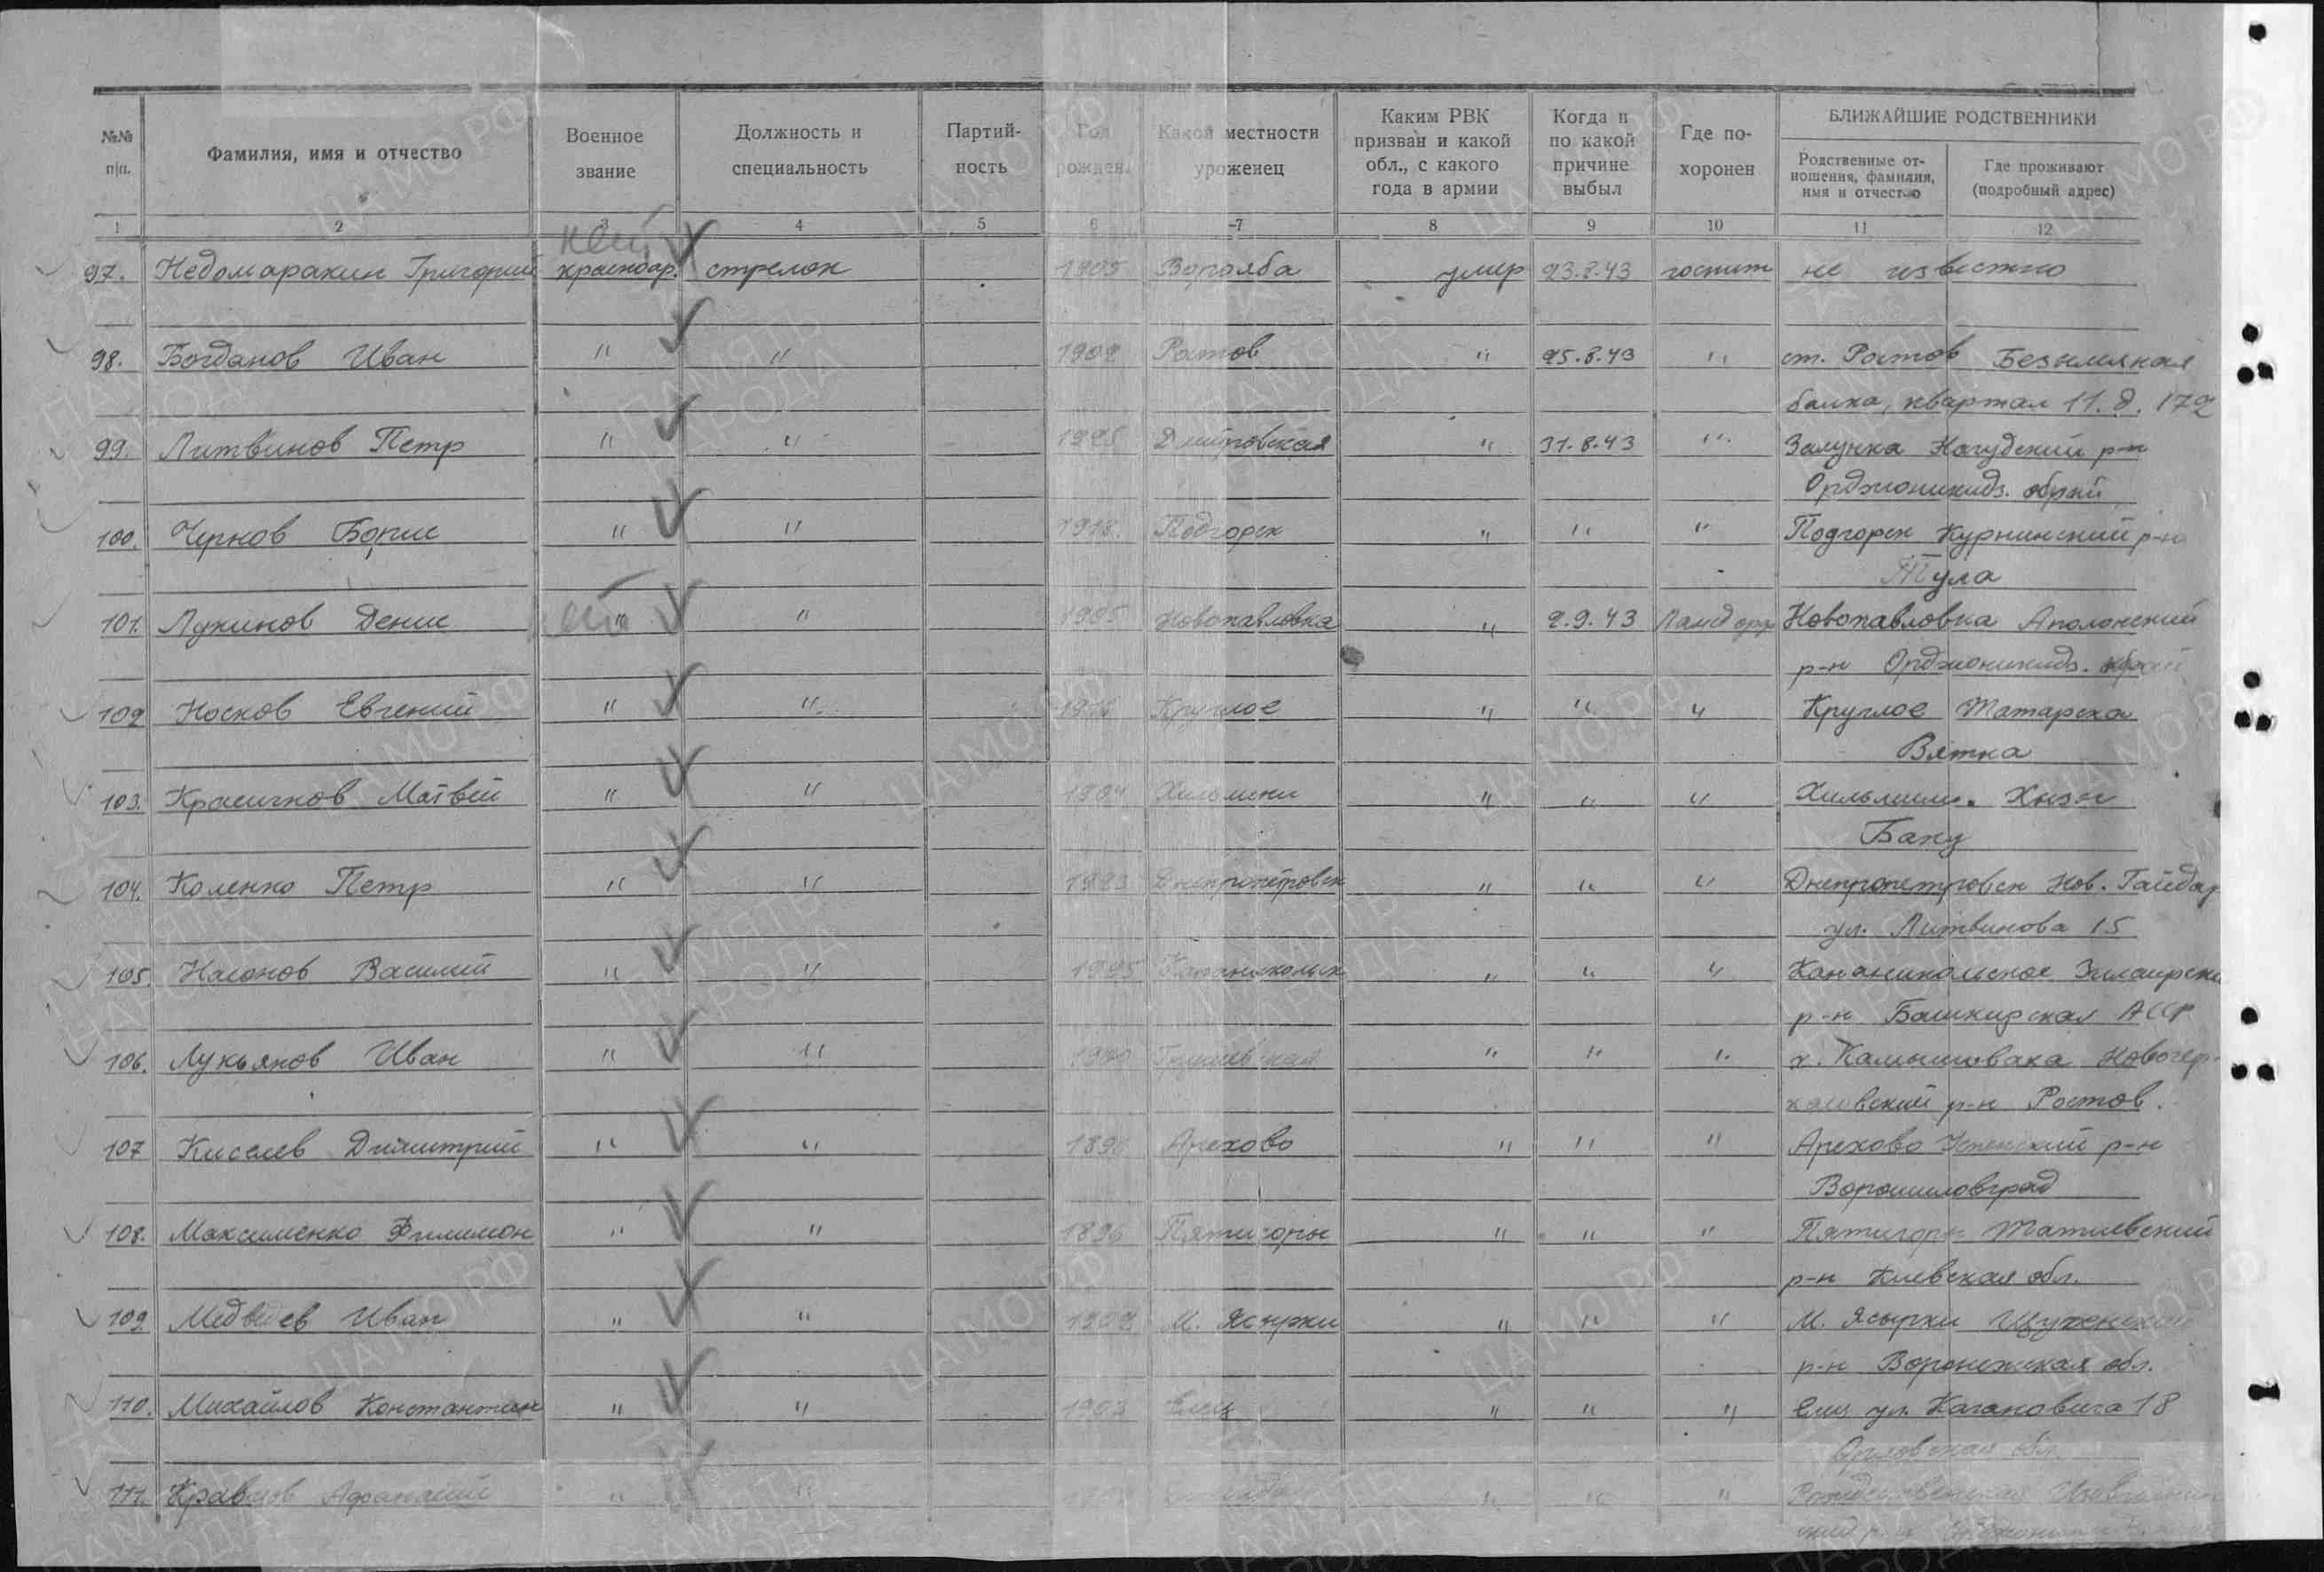 №№ п/п.
Фамилия, имя и отчество
Военное звание
Должность и специальность
Партийность
Год рожден.
Какой местности уроженец
Каким РВК призван и какой обл., с какого года в армии
Когда и по какой причине выбыл
Где похоронен
БЛИЖАЙШИЕ РОДСТВЕННИКИ
Родственные отношения, фамилия, имя и отчество
Где проживают (подробный адрес)
1 2 3 4 5 6 7 8 9 10 11 12
97. Недомаракин Григорий красноар. стрелок 1905 Ворожба умер 23.8.43 госпит не известно
98. Богданов Иван " " 1902 Ростов " 25.8.43 " ст. Ростов Безымяная
балка, квартал 11. д. 172
99. Литвинов Петр " " 1925 Дмитровская " 31.8.43 "
р-н
Орджоникидз.
100. Чернов Борис " " 1918 Подгорск " " " Подгорск р-н
Тула
101. Лукинов Денис " " 1905 Новопавловка " 2.9.43 Новопавловка Аполонский
р-н Орджоникидз. край
102 Носков Евгений " " Круглое " " " Круглое Татарска
Вятка
103. Красичков Матвей " " " " " Хизы
Баку
104. Коленко Петр " " 1923 Днепропетровск " " " Днепропетровск Нов. Гайдар
ул. Литвинова 15
105. Насонов Василий " " 1925 " " " Кананикольское Зилаирски
р-н Башкирская АССР
106. Лукьянов Иван " " Грушевская " " " х. Камышеваха Новочер-
касский р-н Ростов.
107 Киселев Димитрий " " 1896 Арехово " " " Арехово Успенский р-н
Ворошиловград
108. Максименко Филимон " " 1896 Пятигоры " " " Пятигоры Татиевский
р-н Киевская обл.
109 Медведев Иван " " 1902 М. Ясырки " " " М. Ясырки Щученский
р-н Воронежская обл.
110. Михайлов Константин " " 1903 Елец " " " Елец ул. Кагановича 18
Орловская обл
111. Кравцов Афанасий " " " " "
ЦАМО РФ
ПАМЯТЬ НАРОДА